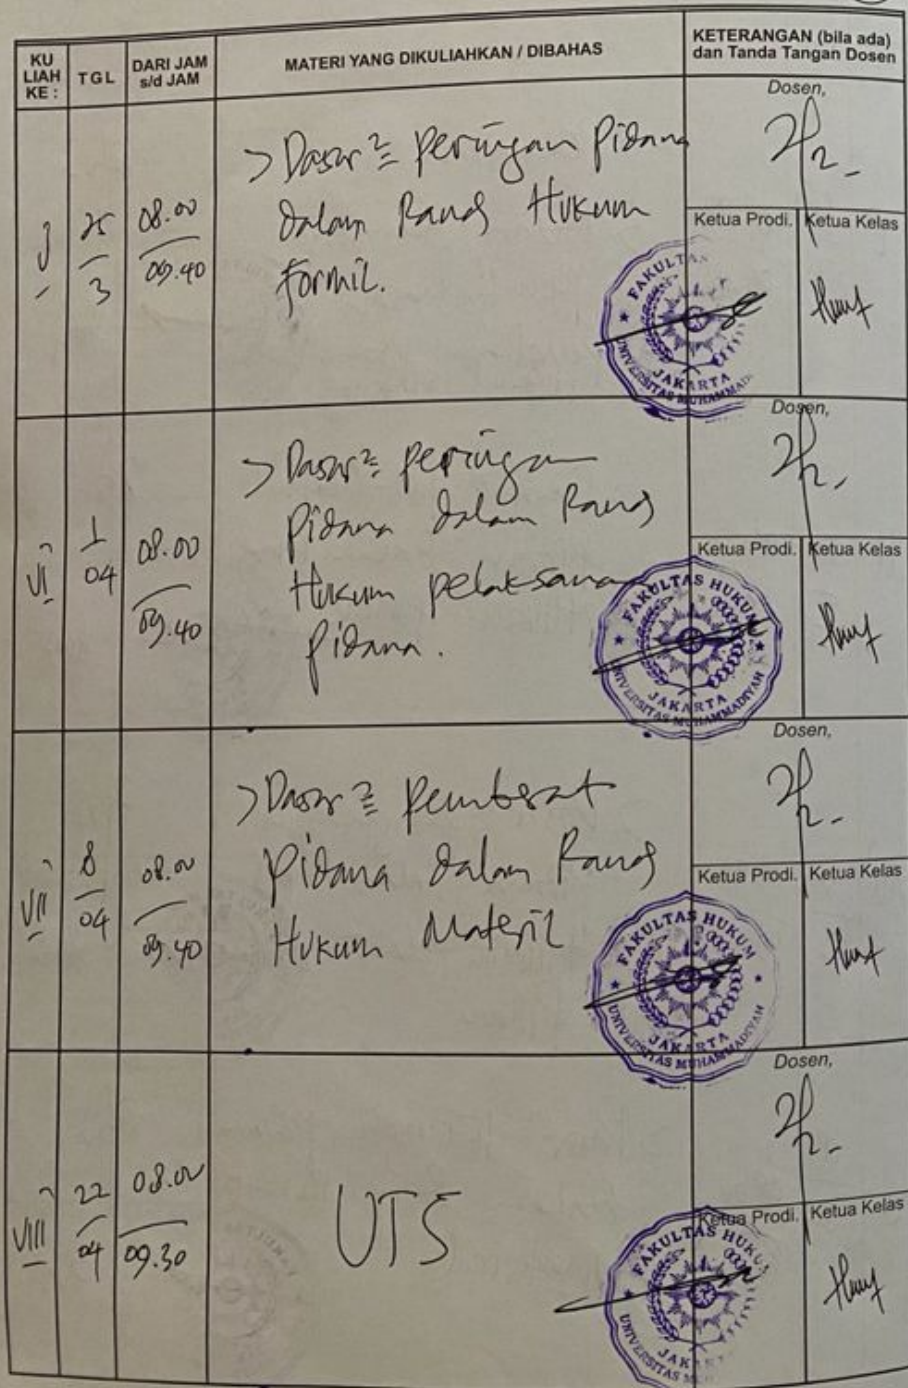 KU
LIAH
KE :
TGL
DARI JAM
s/d JAM
MATERI YANG DIKULIAHKAN / DIBAHAS
KETERANGAN (bila ada)
dan Tanda Tangan Dosen
25
3
08.00
09.40
> Dasar² peringan Pidana
dalam Hukum
formil.
Dosen,
Ketua Prodi.
Ketua Kelas
FAKULTAS
UNIVERSITAS MUHAMMAD
JAKARTA
VI
1
04
08.00
09.40
> Dasar² peringan
Pidana dalam
Hukum pelaksana
Pidana.
Dosen,
Ketua Prodi.
Ketua Kelas
FAKULTAS HUKUM
UNIVERSITAS MUHAMMADIYAH
JAKARTA
VII
8
04
08.00
09.40
> Dasar² pemberat
Pidana dalam
Hukum Materil
Dosen,
Ketua Prodi.
Ketua Kelas
FAKULTAS HUKUM
UNIVERSITAS MUHAMMADIYAH
JAKARTA
VIII
22
04
08.00
09.30
UTS
Dosen,
Ketua Prodi.
Ketua Kelas
FAKULTAS HUKU
UNIVERSITAS MU
JAK